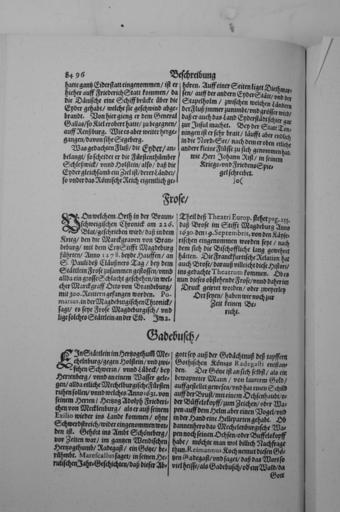 8496
Beschreibung
hatte gantz Eyderstatt eingenommen / ist er
hieher auff Friederich Statt kommen / da
die Dänische eine Schiffbrücke über die
Eyder gehabt / welche sie geschwind abge-
brandt. Von hier gieng er dem General
Gallas / so Kiel erobert hatte / zubegegnen /
auff Rensburg. Wie es aber weiter herge-
gangen / davon sihe Segeberg.
Was gedachten Fluß / die Eyder / an-
belangt / so scheidet er die Fürstenthümer
Schleßwick / und Holstein / also / daß die
Eyder gleichsam ein Ziel ist / derer Länder /
so vnder das Römische Reich eigentlich ge-
hören. Auff einer Seiten liget Diethmar-
sen / auff der andern Eyder Statt / und der
Stapelholm / zwischen welchen Ländern
der Fluß immer zunimbt / und größer wird /
daß er auch das Land Eyderstätt schier gar
zur Insul machet. Bey der Statt Ten-
ningen ist er sehr breit / läufft aber endlich
in die Nord-See / nach dem er oben etliche
andere kleine Flüsse zu sich genommen hat.
wie Herr Johann Rist / in seinem
Kriegs- und Friedens Spie-
gel schreibet.
)o(
Frose /
VOn welchem Orth in der Braun-
schweigischen Chronick am 226.
Blat / geschrieben wird / daß in dem
Krieg / den die Marckgraven von Bran-
denburg / mit dem Ertz-Stifft Magdeburg
führeten / Anno 1278. beyde Hauffen / an
S. Pauli deß Claußners Tag / bey dem
Städtlein Frose zusammen gestossen / vnnd
allda ein grosser Schlacht geschehen / in wel-
cher Marckgraff Otto von Brandenburg /
mit 300. Reutern gefangen worden. Po-
marius in der Magdeburgischen Chronick /
sagt / es seye Frose Magdeburgisch / und
lige solches Städtlein an der Elb. Im 2.
Theil deß Theatri Europ. stehet pag. 215.
daß Wrose im Stifft Magdeburg Anno
1630. den 9. Septembris, von den Käyse-
rischen eingenommen worden seye / nach
dem sich die Bischoffische lang gewehret
hätten. Die Franckfurtische Relation hat
auch Brose / darauß villeicht diese Histori /
ins gedachte Theatrum kommen. Ob es
nun dieses obstehende Frose / vnnd daher im
Druck geirret worden / oder zweyerley
Ort seyen / haben wir noch zur
Zeit keinen Be-
richt.
Gadebusch /
EIn Städtlein im Hertzogthumb Me-
chelnburg / gegen Holstein / und zwi-
schen Schwerin / vnnd Lübeck / bey
Herrenburg / vnnd an einem Wasser gele-
gen / allda etliche Mechelburgische Fürsten
ruhen sollen / vnd welches Anno 1631. von
seinem Herrn / Hertzog Adolph Friedri-
chen von Mecklenburg / als er auß seinem
Exilio wider ins Lande kommen / ohne
Schwerdstreich / wider eingenommen wor-
den ist. Gehört ins Ambt Schönberg /
vor Zeiten war / im gantzen Wendischen
Hertzogthumb / Radegast / ein Götz / be-
rühmbt. Marescallus saget / in seinen He-
rulischen Jahr-Geschichten / daß dieser Ab-
gott sey auß der Gedächtnuß deß tapffern
Gothischen Königs Radegasti entstan-
den. Der Götz ist an sich selbst / als ein
betrangter Mann / von lauterm Gold /
auffgestellet gewesen / und hat einen Schild
auff der Brust / mit einem Ochsenhaubt / o-
der Büffelskopff / zum Zeichen / oder Wa-
pen / auff dem Helm aber einen Vogel / und
in der Hand eine Helleparten gehabt. Ob
dannenhero das Mechelnburgische Wa-
pen noch seinen Ochsen- oder Buffelskopff
habe / möchte man wol billich Nachfrag
thun. Reimannus Koch nennet diesen Gö-
tzen Ragast / vnd saget / daß das Wort so
viel heisse / als Gadebusch / ob ein Wald / da
Gott